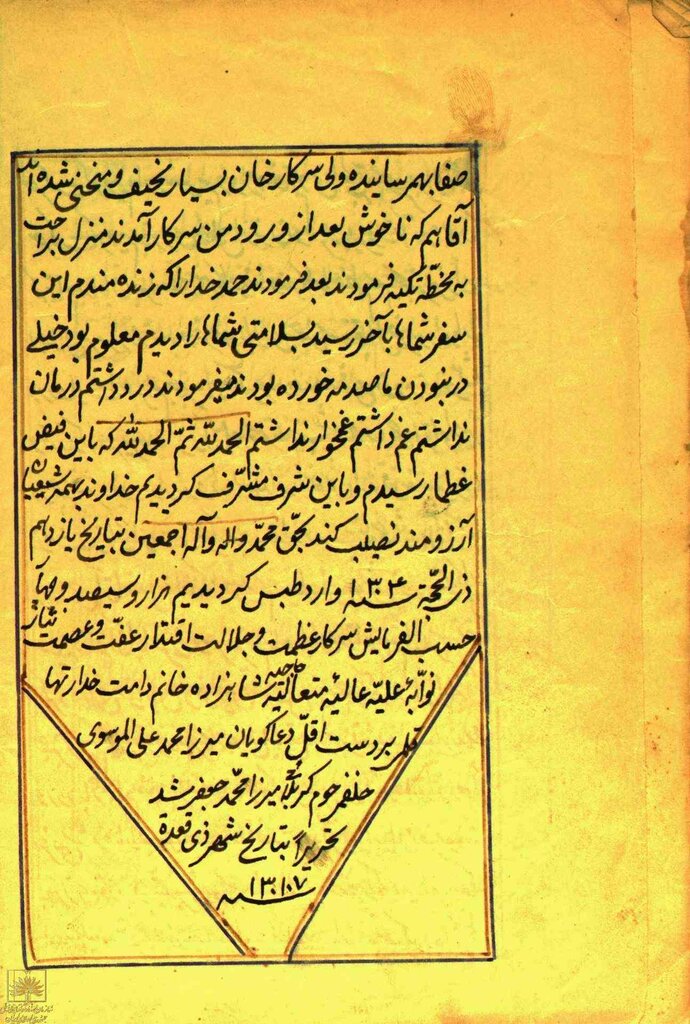 صفا بهمرسانیده ولی سرکار خان بسیار نحیف و منحنی شده‌اند
آقا هم که ناخوش بعد از ورود من سرکار آمدند منزل براحت
به مخطّه تکیه فرمودند بعد فرمودند حمد خدا را که زنده مندم این
سفر شماها بآخر رسید بسلامتی شماها را دیدم معلوم بود خیلی
در نبودن ما صدمه خورده بودند میفرمودند درد داشتم درمان
نداشتم غم داشتم غمخوار نداشتم الحمد لله ثمّ الحمد لله که باین فیض
عظما رسیدم و باین شرف مشرّف گردیدیم خداوند بهمه شیعیان
آرزومند نصیب کند بحق محمّد واله وآله اجمعین بتاریخ یازدهم
ذی الحجّة سنه ۱۳۰۴ وارد طبس گردیدیم هزار و سیصد و چهار
حسب الفرمایش سرکار عظمت و جلالت اقتدار عفّت و عصمت
نوّابهٔ علیّه عالیهٔ متعالیه حاجیه شاهزاده خانم دامت خدارتها
قلمی بر دست اقلّ دعاگویان میرزا محمد علی الموسوی
خلف مرحوم میرزا محمّد جعفر شد
تحریراً بتاریخ شهر ذی قعدة
سنه ۱۳۰۷